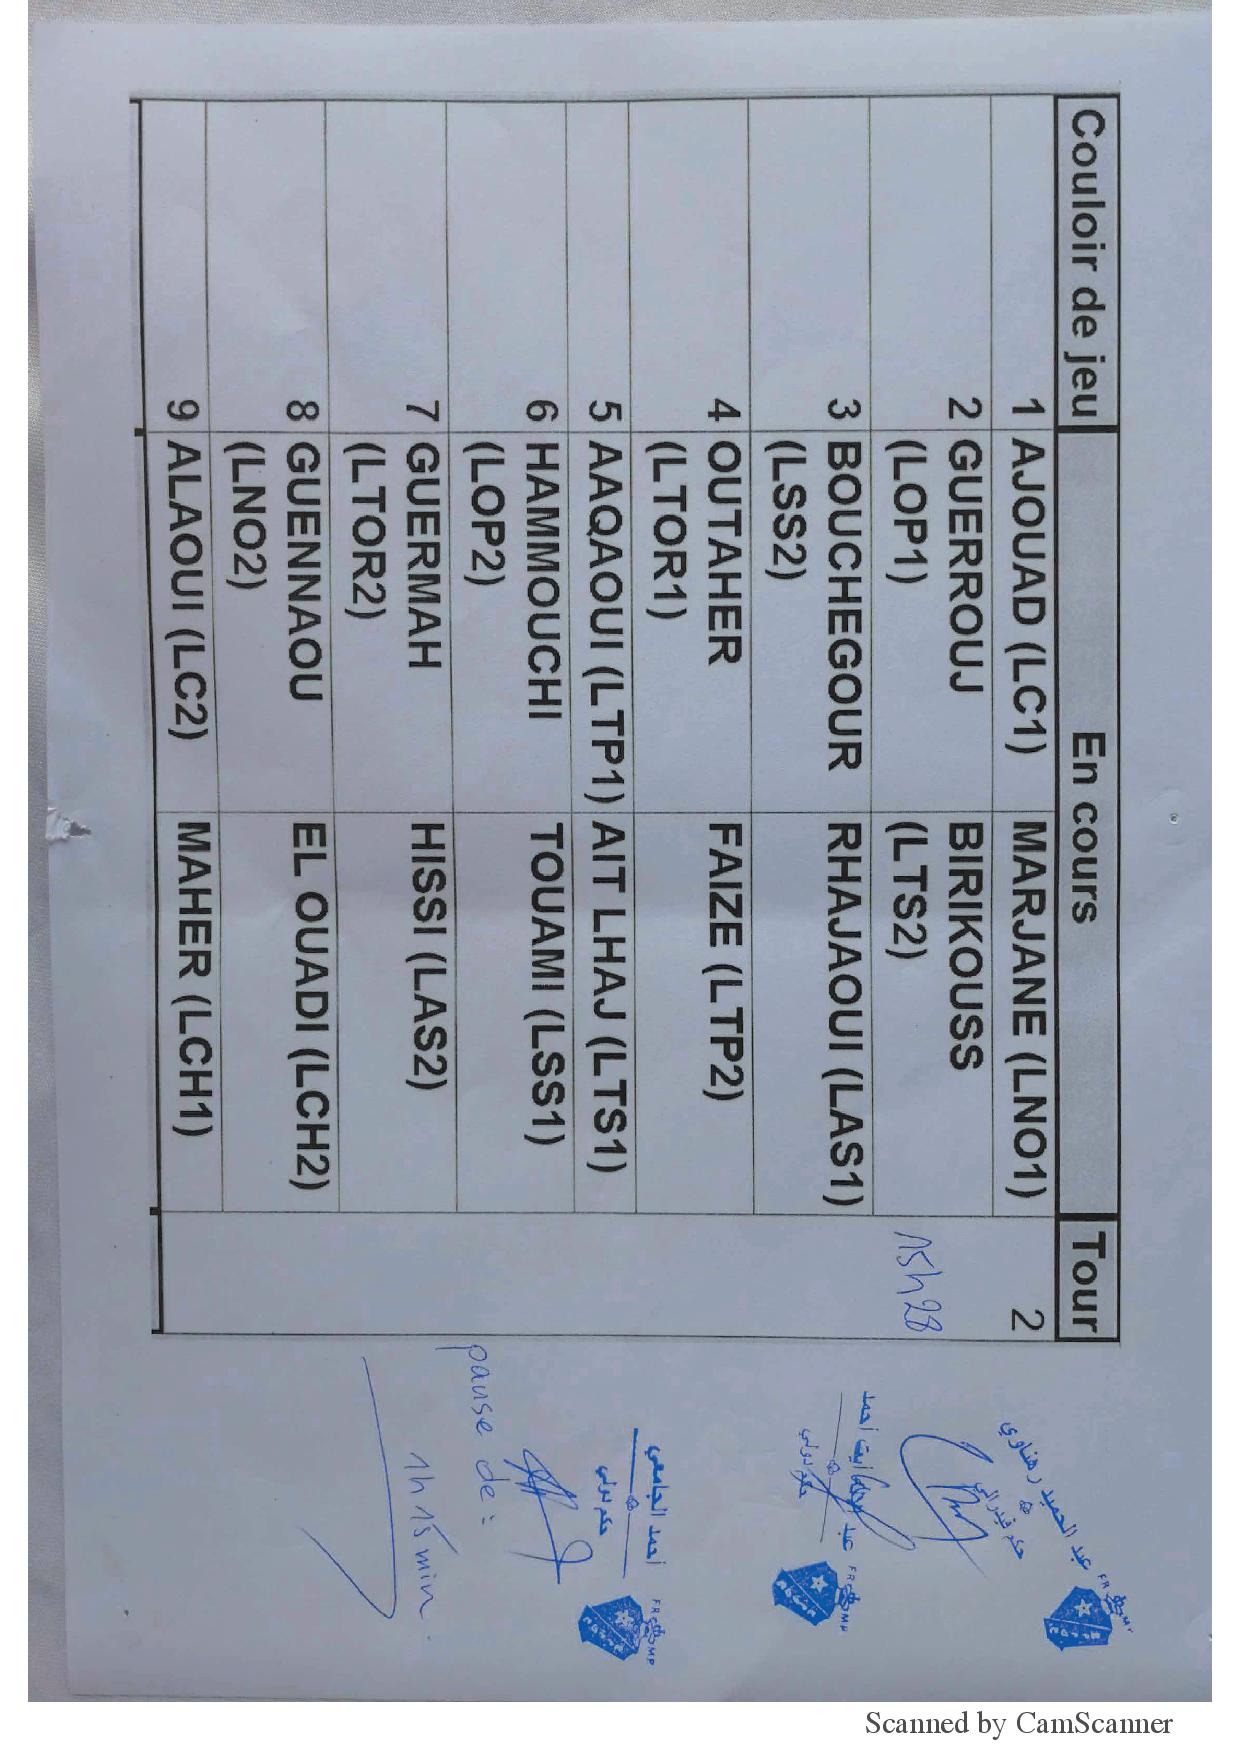 Couloir de jeu En cours Tour
1 AJOUAD (LC1) MARJANE (LNO1) 2
2 GUERROUJ BIRIKOUSS 15h28
(LOP1) (LTS2)
3 BOUCHEGOUR RHAJAOUI (LAS1)
(LSS2)
4 OUTAHER FAIZE (LTP2)
(LTOR1)
5 AAQAOUI (LTP1) AIT LHAJ (LTS1)
6 HAMMOUCHI TOUAMI (LSS1)
(LOP2)
7 GUERMAH HISSI (LAS2)
(LTOR2)
8 GUENNAOU EL OUADI (LCH2)
(LNO2)
9 ALAOUI (LC2) MAHER (LCH1)
عبد الحميد رهناوي
حكم فيدرالي
أيت أحمد
حكم دولي
أحمد الجامعي
حكم دولي
pause de :
1h 15 min
Scanned by CamScanner